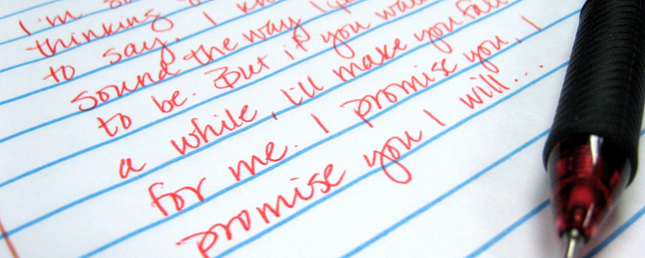 I'm so
thinking
to say. I kn
sound the way I
to be. But if you wa
a while, I'll make you fall
for me. I promise you, I
promise you I will...